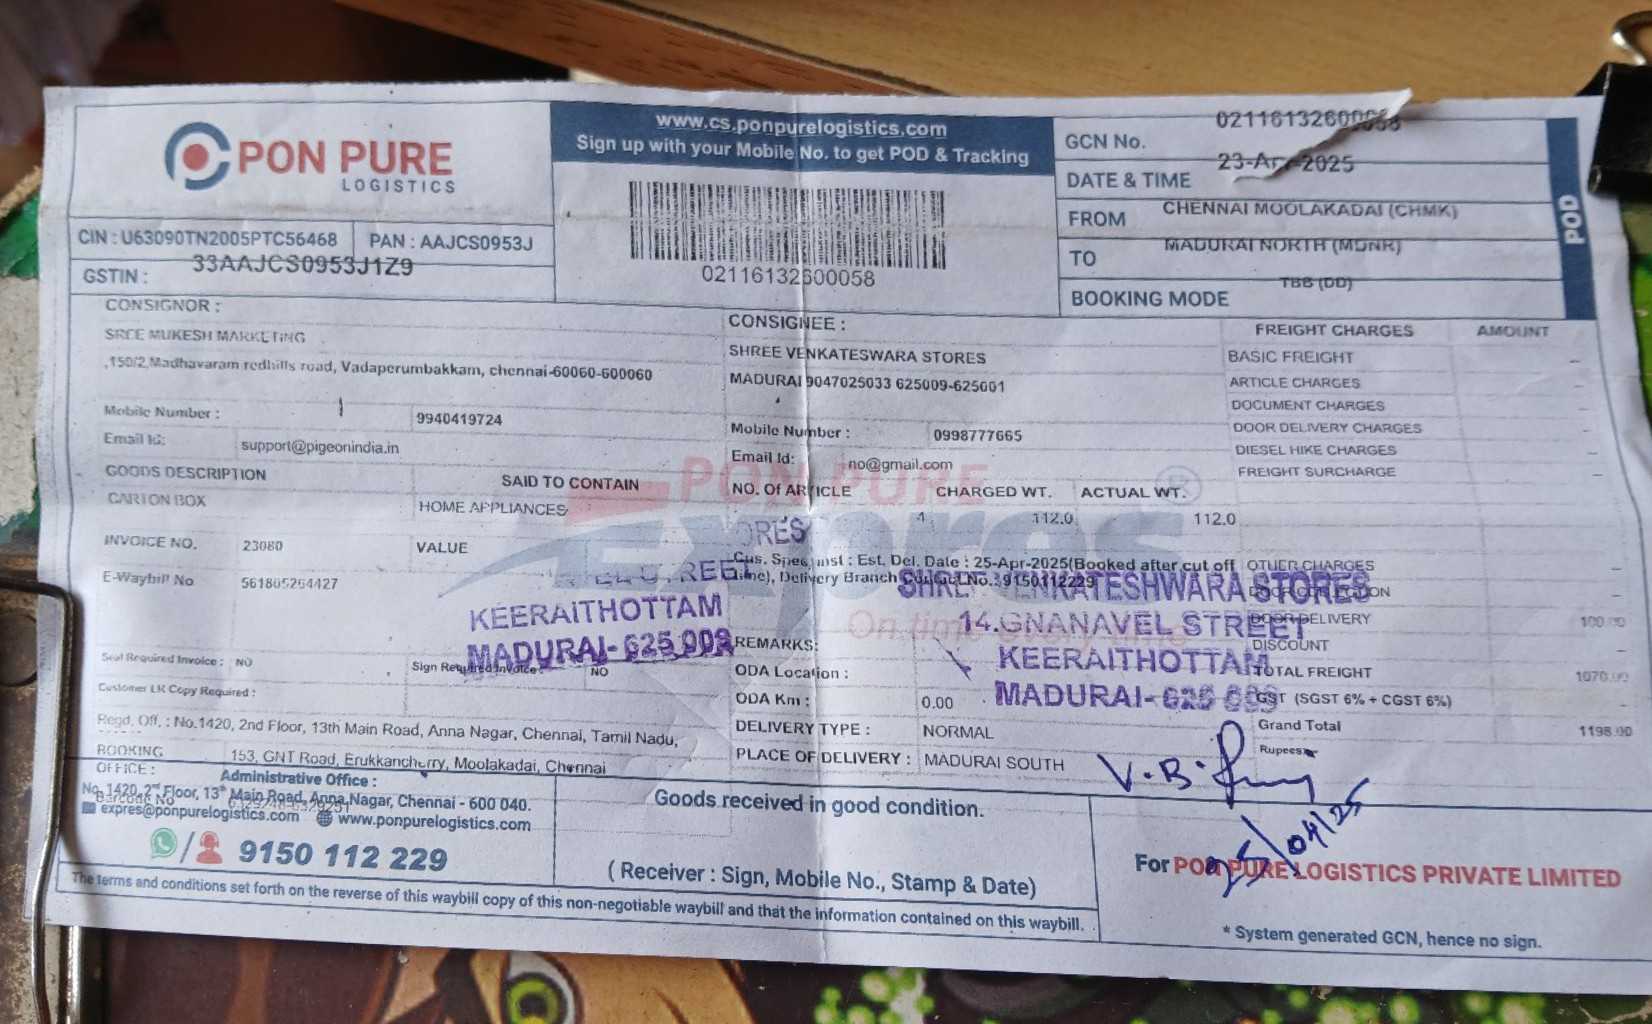 PON PURE
LOGISTICS
www.cs.ponpurelogistics.com
Sign up with your Mobile No. to get POD & Tracking
02116132600058
CIN : U63090TN2005PTC56468
PAN : AAJCS0953J
GSTIN : 33AAJCS0953J1Z9
GCN No. 02116132600058
DATE & TIME 23-Apr-2025
FROM CHENNAI MOOLAKADAI (CHMK)
TO MADURAI NORTH (MDNR)
BOOKING MODE TBB (DD)
POD
CONSIGNOR :
SREE MUKESH MARKETING
,150/2,Madhavaram redhills road, Vadaperumbakkam, chennai-60060-600060
Mobile Number : 9940419724
Email Id: support@pigeonindia.in
CONSIGNEE :
SHREE VENKATESWARA STORES
MADURAI 9047025033 625009-625001
Mobile Number : 0998777665
Email Id: no@gmail.com
FREIGHT CHARGES AMOUNT
BASIC FREIGHT –
ARTICLE CHARGES –
DOCUMENT CHARGES –
DOOR DELIVERY CHARGES –
DIESEL HIKE CHARGES –
FREIGHT SURCHARGE –
GOODS DESCRIPTION SAID TO CONTAIN
CARTON BOX HOME APPLIANCES
NO. Of ARTICLE CHARGED WT. ACTUAL WT.
112.0 112.0
PON PURE
Expres
®
INVOICE NO. 23080 VALUE
E-Waybill No 561805264427
Cus. Spec inst : Est. Del. Date : 25-Apr-2025(Booked after cut off
time), Delivery Branch Contact No. :9150112229
OTHER CHARGES –
DOOR COLLECTION –
DOOR DELIVERY 100.00
DISCOUNT –
TOTAL FREIGHT 1070.00
GST (SGST 6% + CGST 6%)
Grand Total 1198.00
Rupees
ORES
STREET
KEERAITHOTTAM
MADURAI- 625 009
SHREE VENKATESHWARA STORES
14.GNANAVEL STREET
KEERAITHOTTAM
MADURAI-625 009
On time
Seal Required Invoice : NO
Sign Required Invoice : NO
Customer LR Copy Required :
REMARKS:
ODA Location :
ODA Km : 0.00
DELIVERY TYPE : NORMAL
PLACE OF DELIVERY : MADURAI SOUTH
Regd. Off. : No.1420, 2nd Floor, 13th Main Road, Anna Nagar, Chennai, Tamil Nadu,
BOOKING OFFICE : 153, GNT Road, Erukkancherry, Moolakadai, Chennai
Administrative Office :
No. 1420, 2nd Floor, 13th Main Road, Anna Nagar, Chennai - 600 040.
Barcode No
expres@ponpurelogistics.com www.ponpurelogistics.com
9150 112 229
Goods received in good condition.
( Receiver : Sign, Mobile No., Stamp & Date)
25/04/25
For PON PURE LOGISTICS PRIVATE LIMITED
* System generated GCN, hence no sign.
The terms and conditions set forth on the reverse of this waybill copy of this non-negotiable waybill and that the information contained on this waybill.